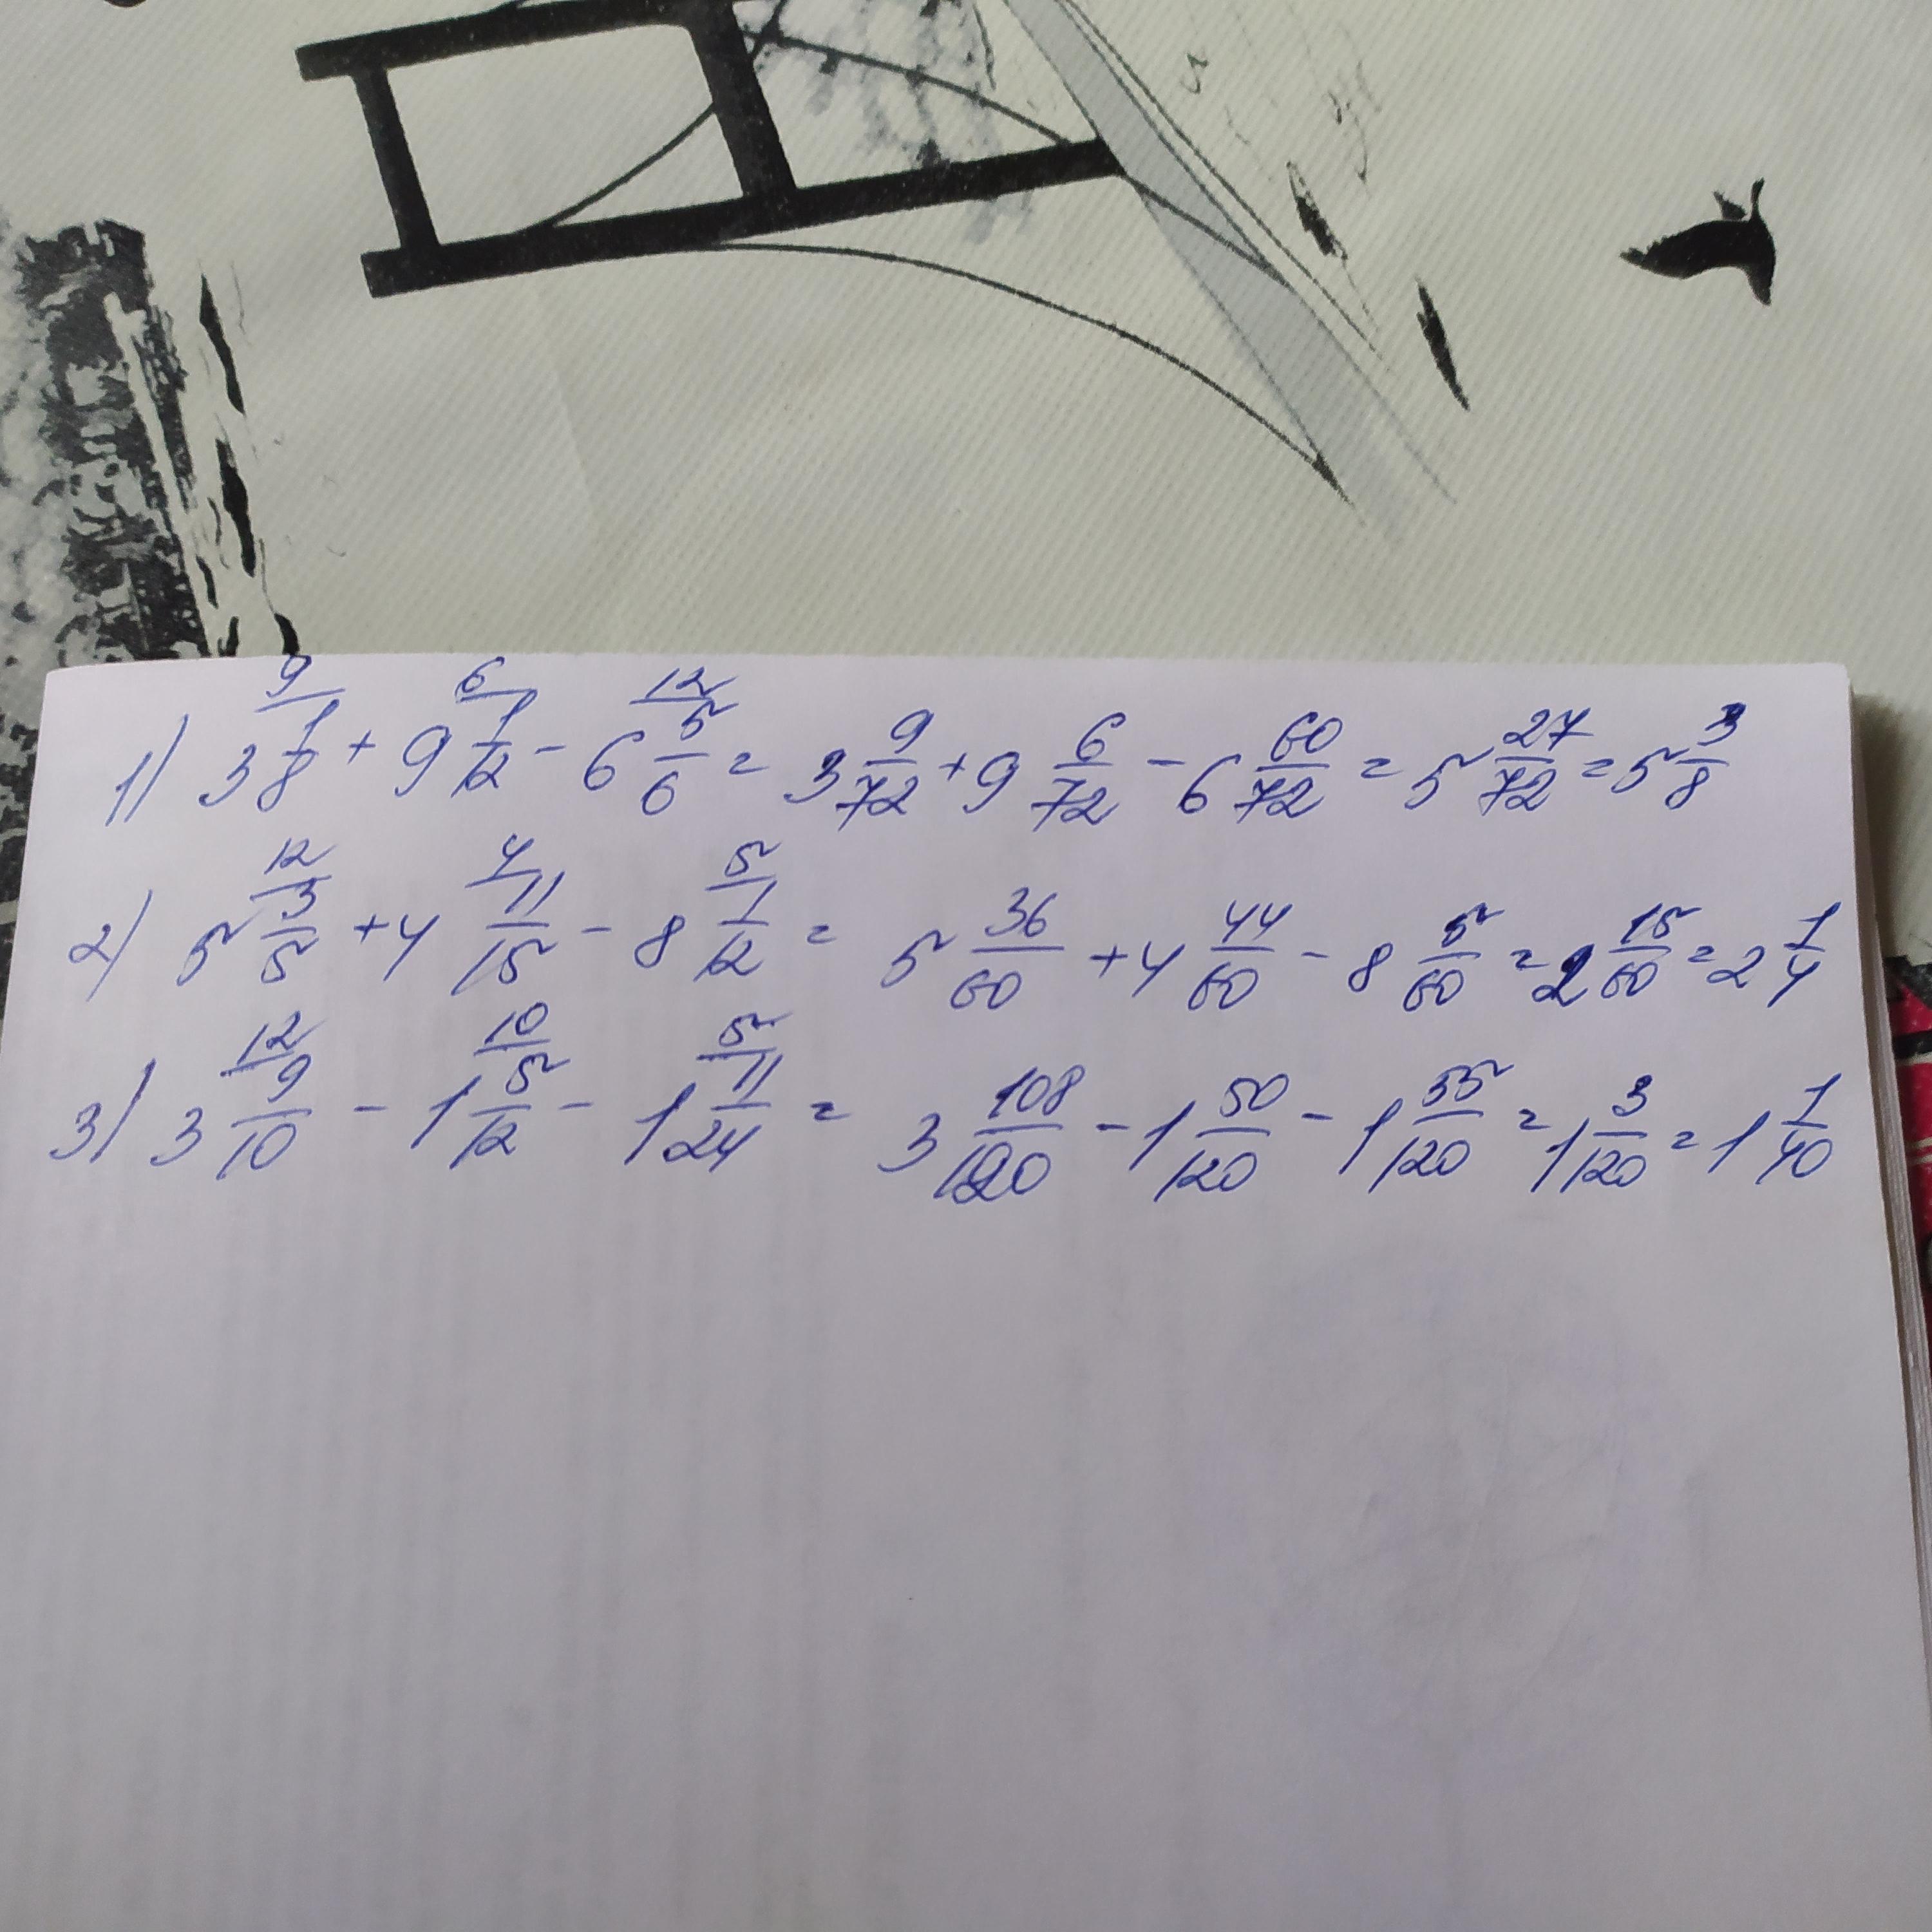 1) 3 9/ 1/8 + 9 6/ 1/12 - 6 12/ 5/6 = 3 9/72 + 9 6/72 - 6 60/72 = 5 27/72 = 5 3/8
2) 5 12/ 3/5 + 4 4/ 11/15 - 8 5/ 1/12 = 5 36/60 + 4 44/60 - 8 5/60 = 2 15/60 = 2 1/4
3) 3 12/ 9/10 - 1 10/ 5/12 - 1 5/ 11/24 = 3 108/120 - 1 50/120 - 1 55/120 = 1 3/120 = 1 1/40